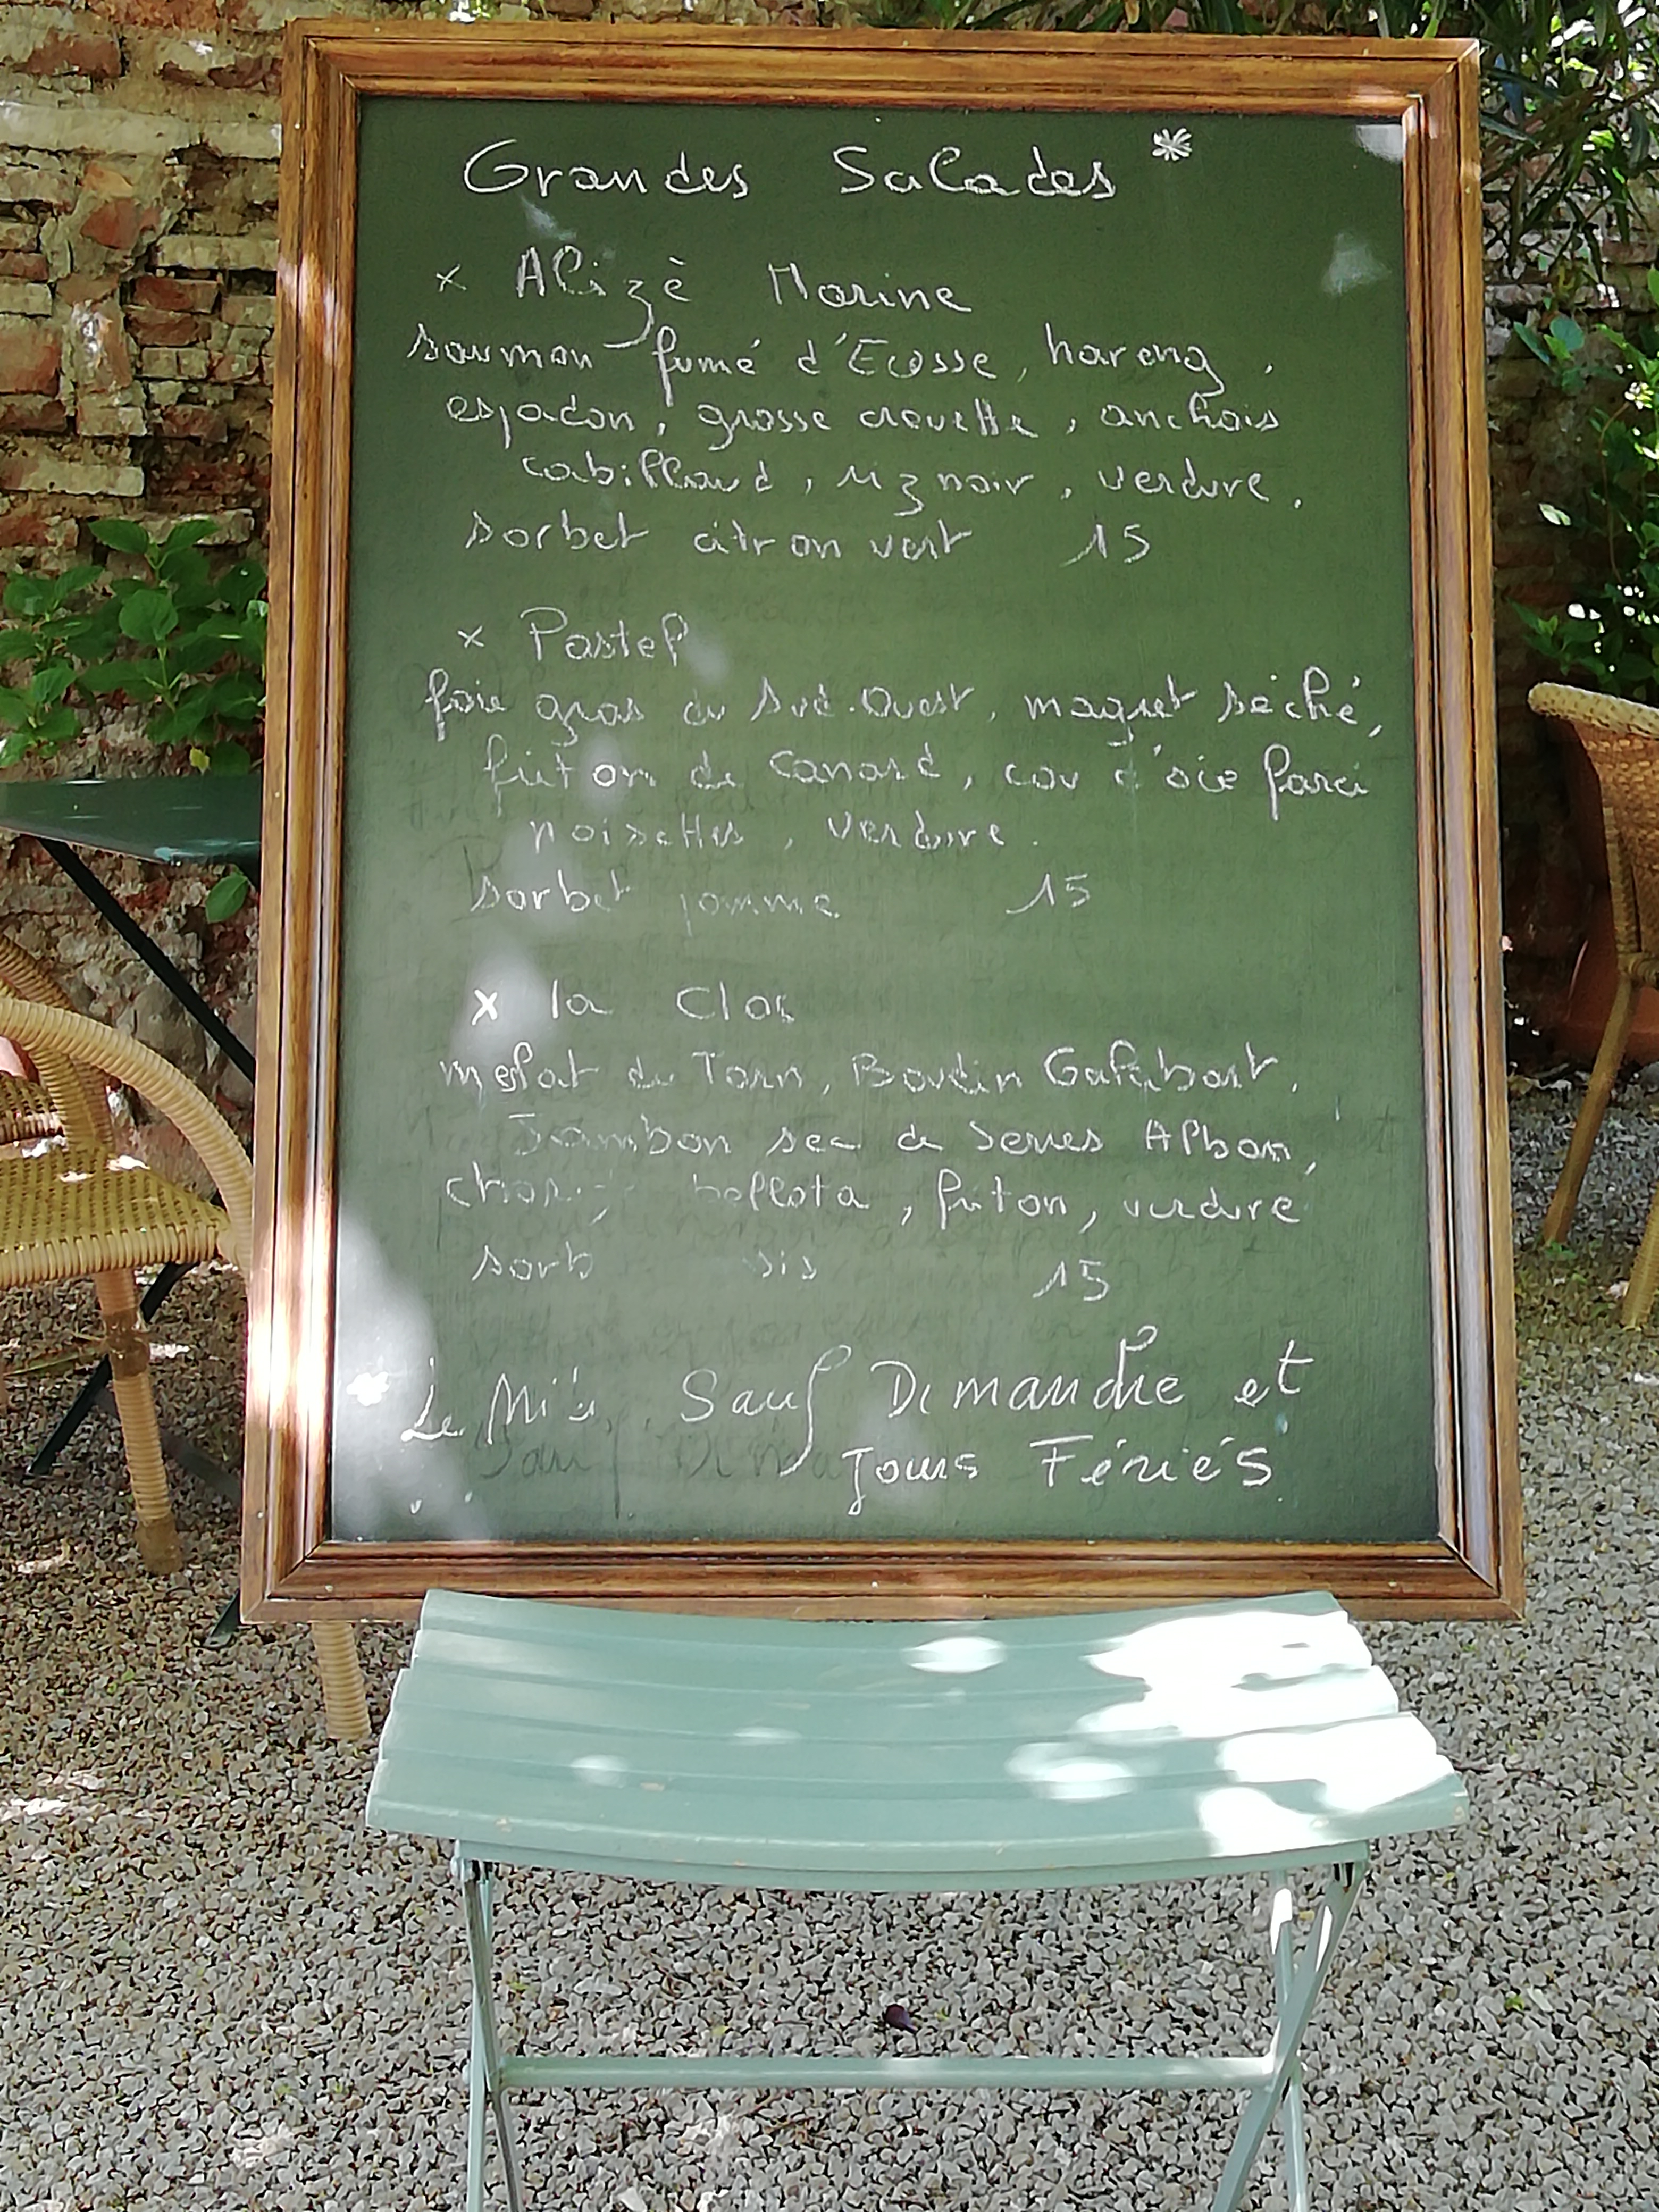 Grandes Salades *
x Alizè Marine
saumon fumé d'Ecosse, hareng,
espadon, grosse crevette, anchois
cabillaud, riz noir, verdure,
sorbet citron vert 15
x Pastel
foie gras du Sud-Ouest, magret séché,
friton de canard, cou d'oie farci
noisettes, verdure.
sorbet pomme 15
x la Clos
melsat du Tarn, Boudin Galabart,
Jambon sec de Serres Alban,
bellota, friton, verdure
15
* Le Midi Sauf Dimanche et
Jours Fériés